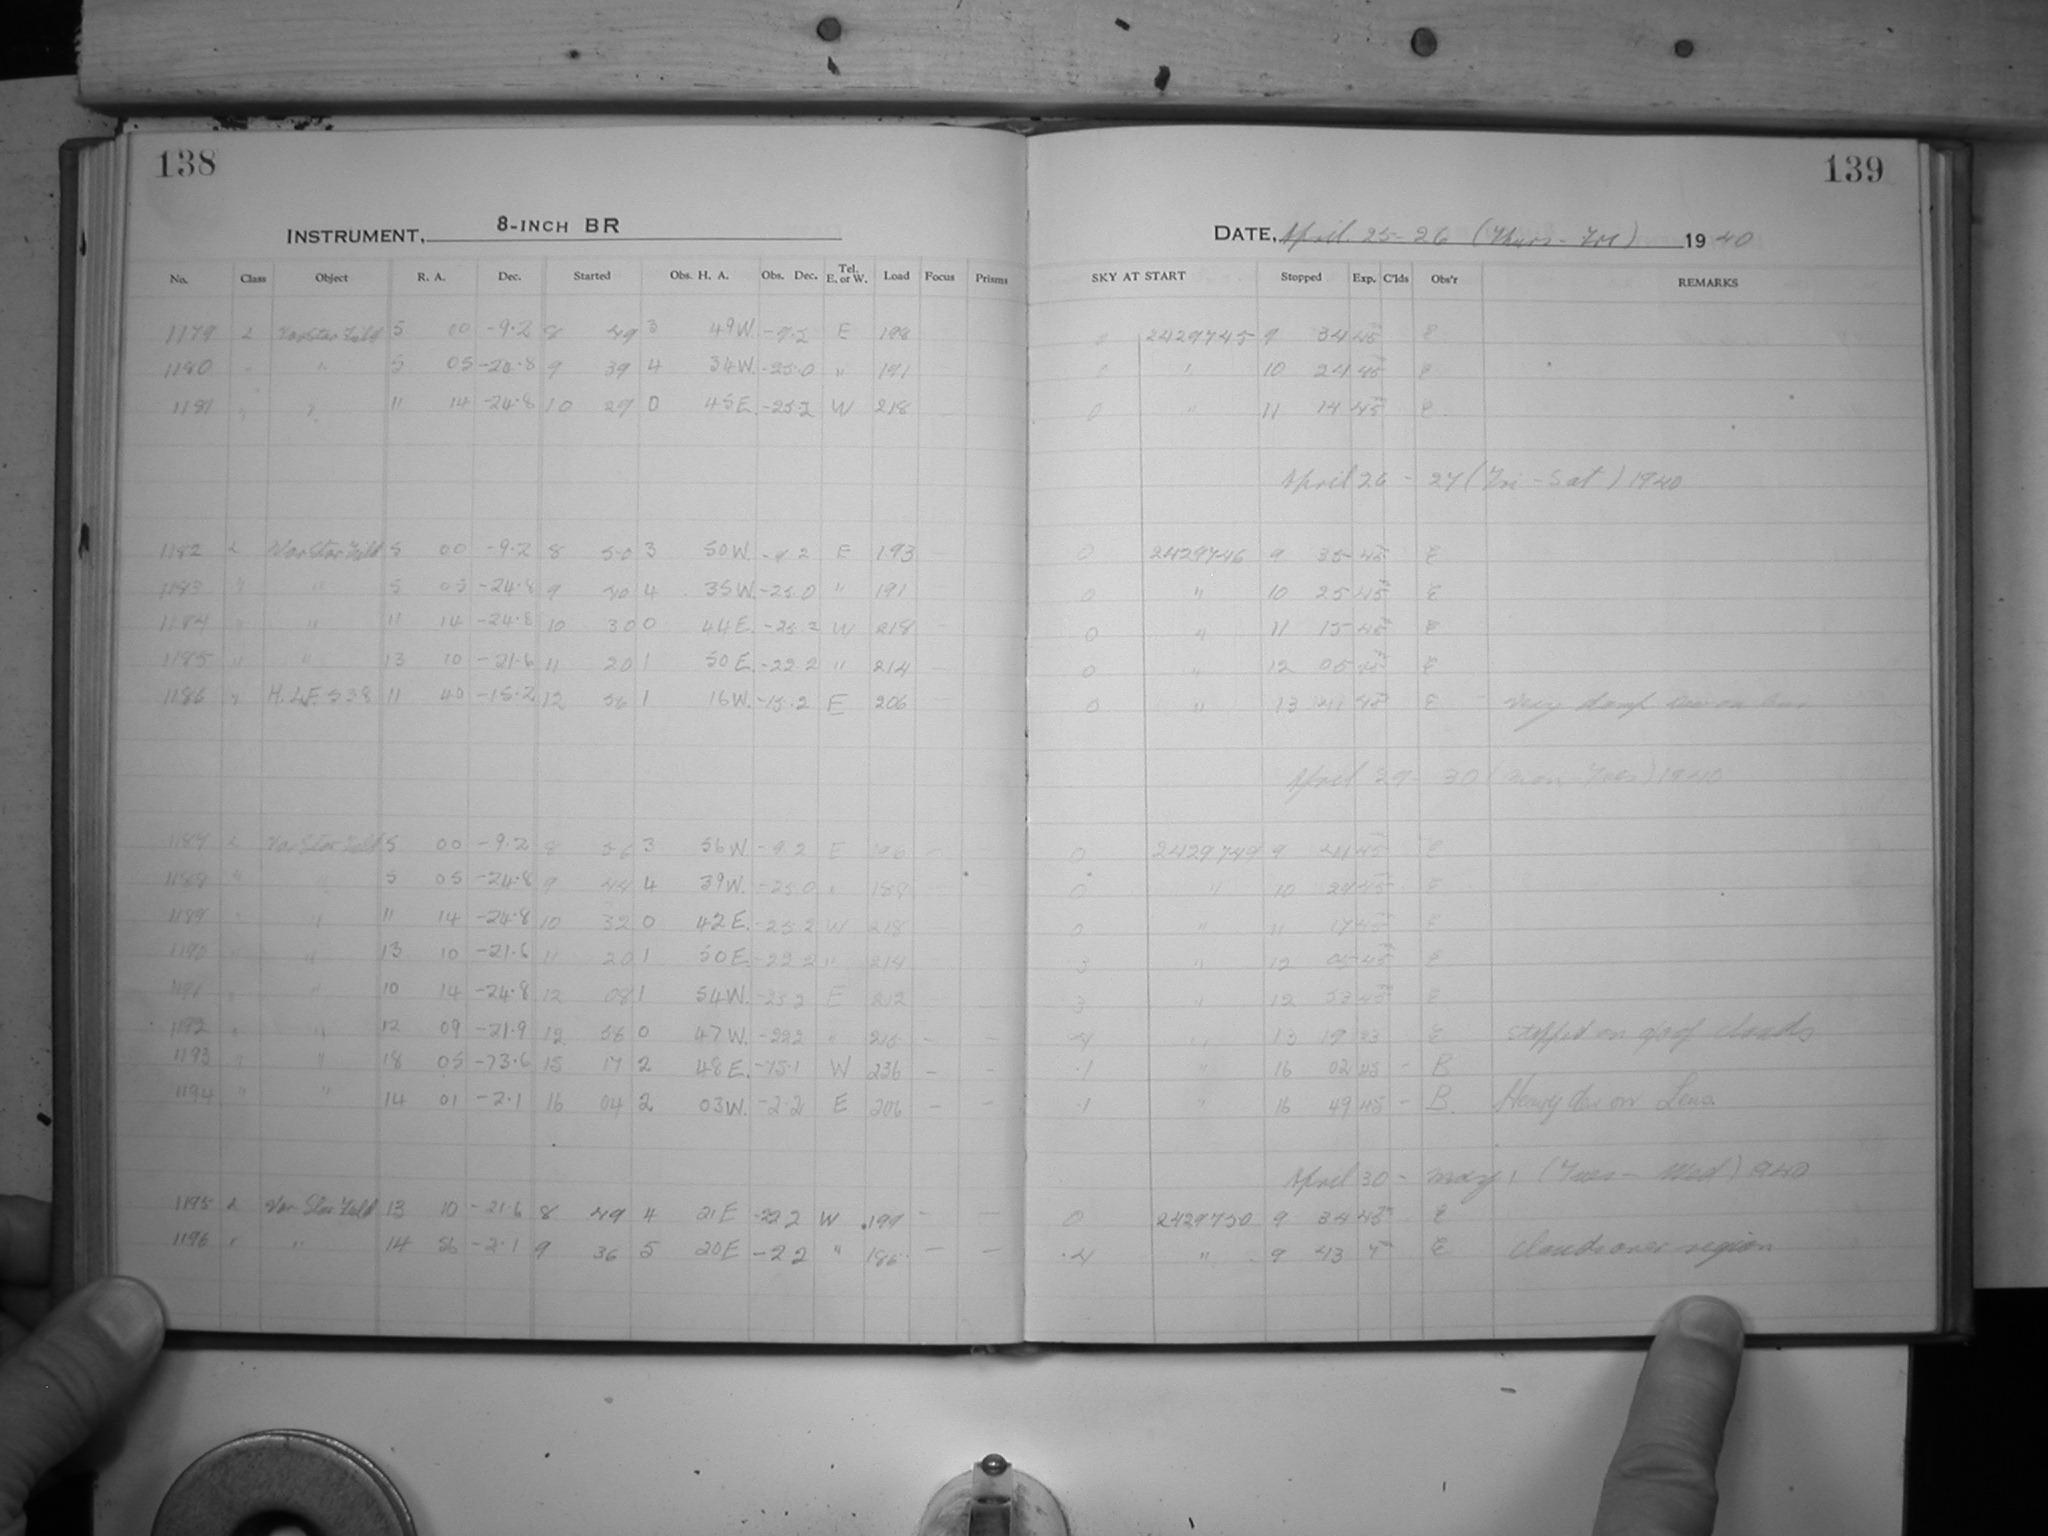 138
139
INSTRUMENT, 8-INCH BR
DATE, April 25-26 (Thurs - Fri) 1940
No. Class Object R. A. Dec. Started Obs. H. A. Obs. Dec. Tel. E. or W. Load Focus Prisms SKY AT START Stopped Exp. C'lds Obs'r REMARKS
1179 L Var Star Field 5 00 -9.2 8 49 3 49 W. -9.2 E 198 2429745 9 34 45 E
1180 " " 5 05 -24.8 9 39 4 34 W. -25.0 " 191 " 10 24 45 E
1181 " " 11 14 -24.8 10 29 0 45 E. -25.2 W 218 0 " 11 14 45 E
April 26 - 27 (Fri - Sat) 1940
1182 L Var Star Field 5 00 -9.2 8 50 3 50 W. -9.2 E 193 0 2429746 9 35 45 E
1183 " " 5 05 -24.8 9 40 4 35 W. -25.0 " 191 0 " 10 25 45 E
1184 " " 11 14 -24.8 10 30 0 44 E. -25.2 W 218 0 " 11 15 45 E
1185 " " 13 10 -21.6 11 20 1 50 E. -22.2 " 214 0 " 12 05 45 E
1186 " H. L.F. 538 11 40 -15.2 12 56 1 16 W. -15.2 E 206 0 " 13 41 45 E Very damp Dew on
April 29 - 30 (Mon Tues) 1940
1187 L Var Star Field 5 00 -9.2 8 56 3 56 W -9.2 E 196 0 2429749 9 41 45 E
1188 " " 5 05 -24.8 9 44 4 39 W. -25.0 " 188 0 " 10 29 45 E
1189 " " 11 14 -24.8 10 32 0 42 E. -25.2 W 218 0 " 11 17 45 E
1190 " " 13 10 -21.6 11 20 1 50 E. -22.2 " 214 3 " 12 05 45 E
1191 " " 10 14 -24.8 12 08 1 54 W. -25.2 E 212 3 " 12 53 45 E
1192 " " 12 09 -21.9 12 56 0 47 W. -22.2 " 215 - - " 13 19 23 E stopped on acct clouds
1193 " " 18 05 -73.6 15 17 2 48 E. -75.1 W 236 - - .1 " 16 02 45 - B
1194 " " 14 01 -2.1 16 04 2 03 W. -2.2 E 206 - - .1 " 16 49 45 - B. Heavy dew on Lens
April 30 - May 1 (Tues - Wed) 1940
1195 L Var Star Field 13 10 -21.6 8 49 4 21 E -22.2 W 199 - - 0 2429750 9 34 45 E
1196 " " 14 56 -2.1 9 36 5 20 E -2.2 " 186 - - .4 " 9 43 7 E Clouds over region